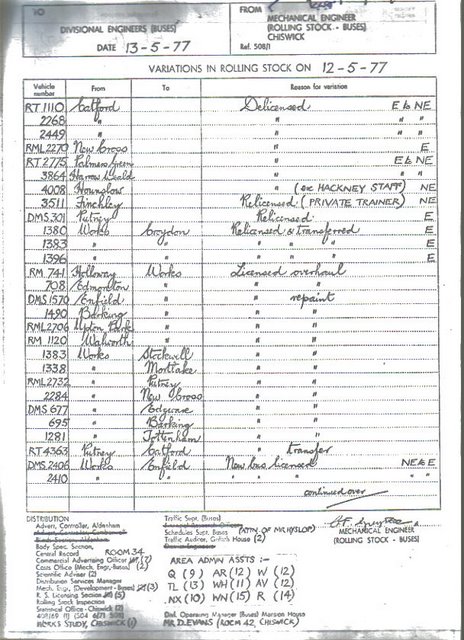 TO
DIVISIONAL ENGINEERS (BUSES)
DATE 13-5-77
FROM
MECHANICAL ENGINEER
(ROLLING STOCK - BUSES)
CHISWICK
Ref. 508/1
VARIATIONS IN ROLLING STOCK ON 12-5-77
Vehicle number From To Reason for variation
RT 1110 Catford Delicensed E to NE
2268 " " " "
2449 " " " "
RML 2270 New Cross " E
RT 2775 Palmers Green " E to NE
3864 Harrow Weald " " "
4008 Hounslow " (ex HACKNEY STAFF) NE
3511 Finchley Relicensed (PRIVATE TRAINER) NE
DMS 301 Putney Relicensed E
1380 Works Croydon Relicensed & transferred E
1383 " " " " " E
1396 " " " " " E
RM 741 Holloway Works Licensed overhaul
708 Edmonton " " "
DMS 1570 Enfield " " repaint
1490 Barking " " "
RML 2706 Upton Park " " "
RM 1120 Walworth " " "
1383 Works Stockwell " "
1338 " Mortlake " "
RML 2732 " Putney " "
2284 " New Cross " "
DMS 677 " Edgware " "
695 " Barking " "
1281 " Tottenham " "
RT 4363 Putney Catford " transfer
DMS 2406 Works Enfield New bus licensed NE to E
2410 " " " " " "
continued over
DISTRIBUTION
Advert. Controller, Aldenham
Body Spec. Section,
Central Record ROOM 34
Commercial Advertising Officer
Costs Office (Mech. Engr. Buses)
Scientific Adviser (2)
Distribution Services Manager
Mech. Engr. (Development - Buses) (3)
R. S. Licensing Section (5)
Rolling Stock Inspection
Statistical Office - Chiswick (2)
WORKS STUDY, CHISWICK (1)
Traffic Supt. (Buses)
Schedules Supt. Buses (ATTN. OF MR HYSLOP)
Traffic Auditor, Griffith House (2)
AREA ADMN ASSTS :-
Q (9) AR (12) W (12)
TL (13) WH (11) AV (12)
NX (10) WN (15) R (14)
Divl. Operating Manager (Buses) Mansion House
MR D. EVANS (ROOM 42, CHISWICK)
MECHANICAL ENGINEER
(ROLLING STOCK - BUSES)